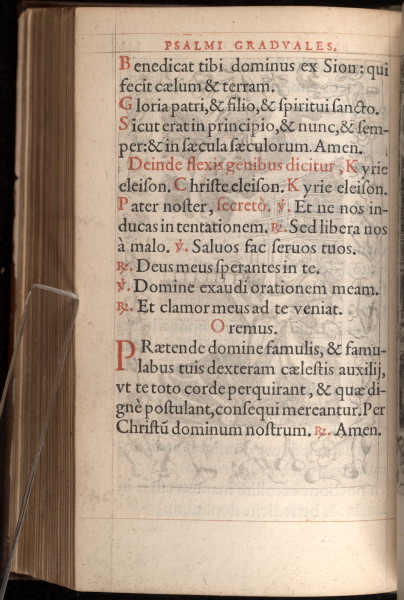 PSALMI GRADVALES.
Benedicat tibi dominus ex Sion: qui
fecit cælum & terram.
Gloria patri, & filio, & ſpiritui ſancto.
Sicut erat in principio, & nunc, & ſem-
per: & in ſæcula ſæculorum. Amen.
Deinde flexis genibus dicitur, Kyrie
eleiſon. Chriſte eleiſon. Kyrie eleiſon.
Pater noſter, ſecretò. ℣. Et ne nos in-
ducas in tentationem. ℟. Sed libera nos
à malo. ℣. Saluos fac ſeruos tuos.
℟. Deus meus ſperantes in te.
℣. Domine exaudi orationem meam.
℟. Et clamor meus ad te veniat.
Oremus.
PRætende domine famulis, & famu-
labus tuis dexteram cæleſtis auxilij,
vt te toto corde perquirant, & quæ di-
gnè poſtulant, conſequi mereantur. Per
Chriſtũ dominum noſtrum. ℟. Amen.